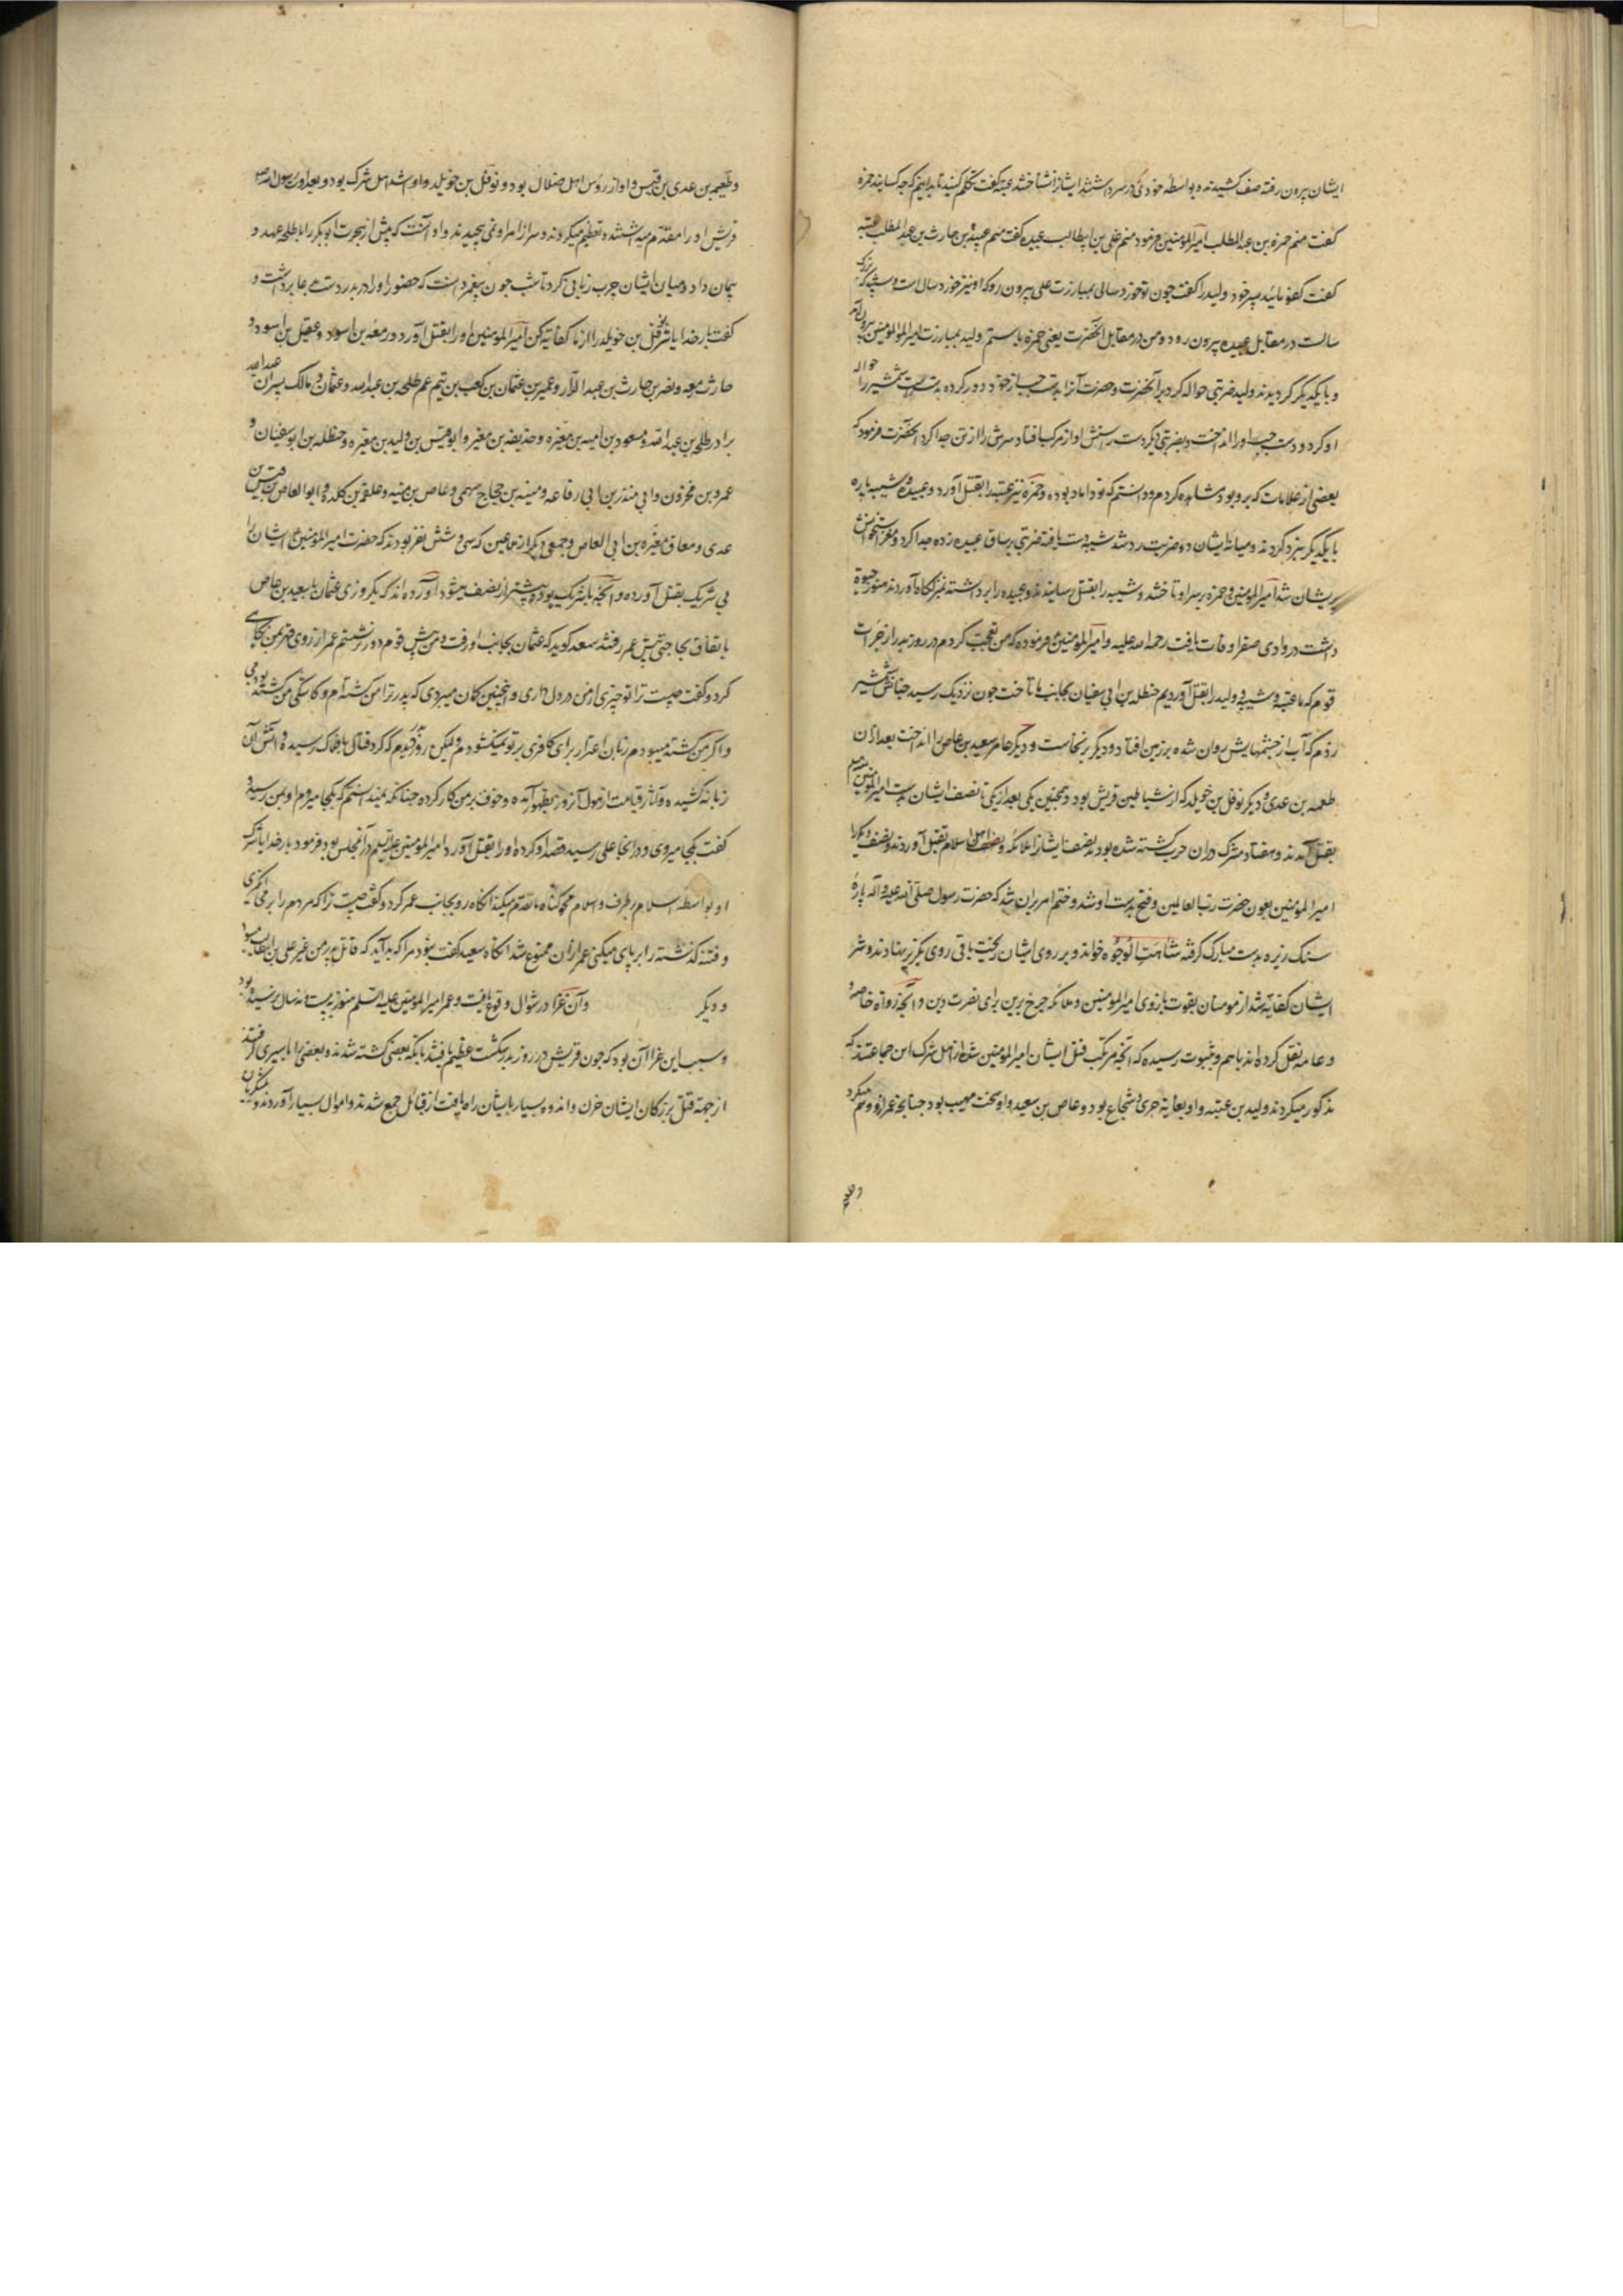 ایشان بیرون رفته صف کشیدند و بواسطه خودی که در سر داشتند ایشانرا نشناختند عتبه گفت تکلم کنید تا بدانیم که چه کسانید حمزه
گفت منم حمزه بن عبد المطلب امیر المؤمنین فرمود منم علی بن ابیطالب عبیده گفت منم عبیدة بن حارث بن عبد المطلب عتبه
گفت کفو مائید پسر خود ولید را گفت چون تو خورد سالی بمبارزت علی بیرون رو که او نیز خورد سال است و شیبه که بزرک
سالست در مقابل عبیده بیرون رود و من در مقابل آنحضرت یعنی حمزه بایستم ولید بمبارزت امیر المؤمنین بیرون آمد
و با یکدیگر گردیدند ولید ضربتی حواله کرد بر آنحضرت و حضرت آنرا بدست چپ از خود دور کرده بدست راست شمشیر را حواله
او کرد و دست چپ او را انداخت و بضربتی دیگر دست راستش او از مرکب افتاد سرش را از تن جدا کرد آنحضرت فرمود که
بعضی از علامات که برو بود مشاهده کردم و دانستم که نو داماد بوده و حمزه نیز عتبه را بقتل آورد و عبیده و شیبه پاره
با یکدیگر نبرد کردند و میانه ایشان دو ضربت رد شد شیبه دست یافته ضربتی بر ساق عبیده زده جدا کرد و مغز استخوانش
پریشان شد امیر المؤمنین و حمزه بر سر او تاختند و شیبه را بقتل رسانیدند و عبیده را برداشته بلشکرگاه آوردند هنوز حیوة
داشت در وادی صفرا وفات یافت رحمه الله علیه و امیر المؤمنین فرموده که من تعجب کردم در روز بدر از جرات
قوم که ما عتبه و شیبه و ولید را بقتل آوردیم حنظله بن ابی سفیان بجانب ما تاخت چون نزدیک رسید چنانش شمشیر
زدم که آب از چشمهایش روان شده بر زمین افتاد و دیگر برنخاست و دیگر عامر سعید بن عاص را انداخت بعد از آن
طعمه بن عدی و دیگر نوفل بن خویلد که از شیاطین قریش بود و همچنین یکی بعد از یکی تا نصف ایشان بدست امیر المؤمنین علیه السلم
بقتل آمدند و هفتاد مشرک در آن حرب کشته شده بودند نصف ایشانرا ملائکه و اهل اسلام بقتل آوردند و نصف دیگر را
امیر المؤمنین بعون حضرت رب العالمین و فتح بدست او شد و ختم امر بر آن شد که حضرت رسول صلی الله علیه و آله پارهٔ
سنک ریزه بدست مبارک گرفته شاهت الوجوه خواند و بر روی ایشان ریخت باقی روی بگریز نهادند و شر
ایشان کفایه شد از مومنان بقوت بازوی امیر المؤمنین و ملائکه چرخ برین برای نصرت دین و آنچه رواة خاصه و
و عامه نقل کرده اند باهم و بثبوت رسیده که آنچه مرتکب قتل ایشان امیر المؤمنین شد از اهل شرک این جماعتند که
مذکور میگردند ولید بن عتبه و او بغایة جری و شجاع بود و عاص بن سعید و او سخت مهیب بود چنانچه عمر ازو وهم میکرد
و طعیمه
و طعیمه بن عدی بن قیس و او از رؤس اهل ضلال بود و نوفل بن خویلد و او اشد اهل شرک بود و بعداوت رسول الله
قریش او را مقدم میداشتند و تعظیم میکردند و سر از امر او نمی پیچیدند و او آنست که پیش از هجرت ابوبکر را با طلحه عهد و
پیمان داد و میان ایشان چرب زبانی کرد تا شب چون پیغمبر دانست که حضور او را در بدر دست بدعا برداشت و
گفت بار خدایا شر نوفل بن خویلد را از ما کفایه کن امیر المؤمنین او را بقتل آورد و زمعه بن اسود و عقیل بن اسود و
حارث بن زمعه و نضر بن حارث بن عبد الدار و عمیر بن عثمان بن کعب بن تیم عم طلحه بن عبدالله و عثمان و مالک پسران عبدالله
برادر طلحه بن عبدالله و مسعود بن امیه بن مغیره و حذیفه بن مغیره و ابو قیس بن ولید بن مغیره و حنظله بن ابو سفیان و
عمرو بن مخزون و ابی منذر بن ابی رفاعه و منبه بن حجاج سهمی و عاص بن منبه و علقمه بن کلده و ابو العاص بن قیس بن
عدی و معاق مغیره بن ابی العاص و جمعی دیگر از معاندین که سی و شش نفر بودند که حضرت امیر المؤمنین ایشان را
بی شریک بقتل آورده و آنچه با شریک بوده بیشتر از نصف میشود آورده اند که یکروزی عثمان با سعید بن عاص
باتفاق بحاجتی پیش عمر رفتند سعد گوید که عثمان بجانب او رفت و من پیش قوم دور نشستم عمر از روی قهر بمن نگاهی
کرد و گفت چیست ترا تو چیزی از من در دل داری و اینچنین گمان میبردی که پدر ترا من کشته ام و کاشکی من کشته بودمی
و اگر من کشته میبودم زبان اعتذار برای کافری بر تو نمیگشودم ولیکن روز بدر دیدم که گرد قتال بافلاک رسیده و آتش آن
زبانه کشیده و آثار قیامت از هول آنروز بظهور آمده و خوف بر من کار کرده چنانکه نمیدانستم که بکجا میروم او بمن رسید و
گفت بکجا میروی و در آنجا علی رسید قصد او کرده او را بقتل آورد امیر المؤمنین علیه السلم در آن مجلس بود فرمود بار خدایا شرک
او بواسطه اسلام بر طرف و اسلام محو گناه ما تقدم میکند آنگاه رو بجانب عمر کرد و گفت چیست ترا که مردم را بر می انگیزی
و فتنه گذشته را بر پای میکنی عمر از آن ممنوع شد آنگاه سعید گفت مرا که بد آید که قاتل پدر من غیر علی بن ابیطالب میبود
و دیگر و آن غزا در شوال وقوع یافت و عمر امیر المؤمنین علیه السلم هنوز به بیست و نه سال نرسیده بود
و سبب این غزا آن بود که چون قریش در روز بدر شکست عظیم یافتند بآنکه بعضی کشته شدند و بعضی را باسیری گرفتند
از جهة قتل بزرگان ایشان حزن و اندوه بسیار بایشان راه یافت از قبائل جمع شدند و اموال بسیار آوردند و